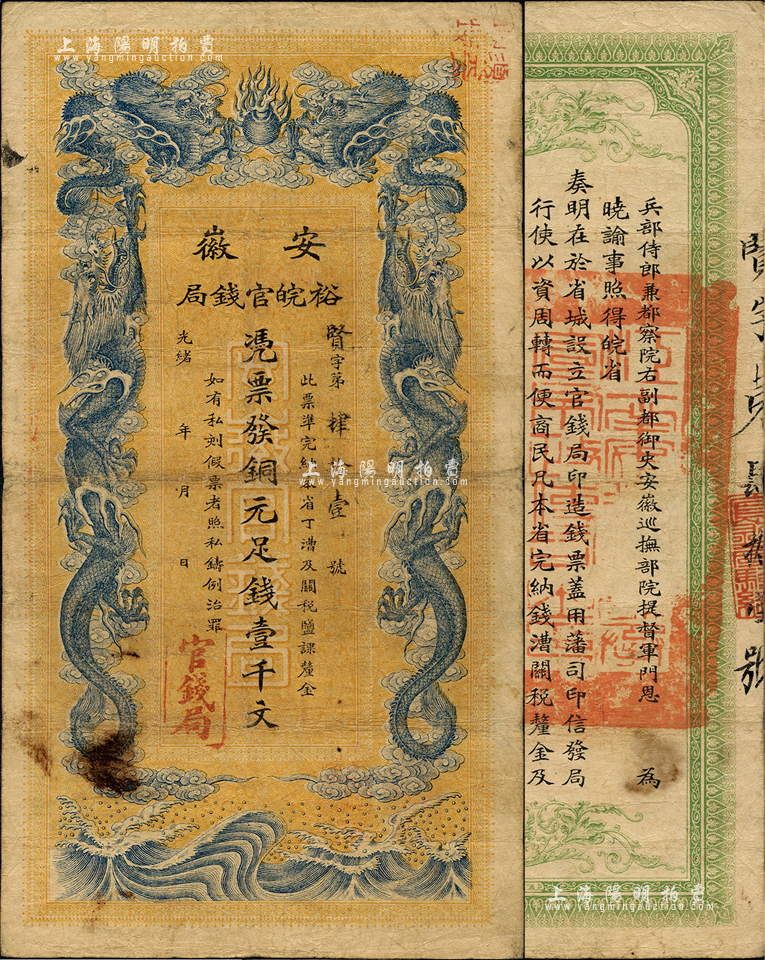 上海陽明拍賣
www.yangmingauction.com
安徽
裕皖官錢局
賢字第肆拾壹號
此票準完納本省丁漕及關稅鹽課釐金
憑票發銅元足錢壹千文
如有私刻假票者照私鑄例治罪
光緒 年 月 日
官錢局
上海陽明拍賣
www.yangmingauction.com
兵部侍郎兼都察院右副都御史安徽巡撫部院提督軍門恩 為
曉諭事照得皖省
奏明在於省城設立官錢局印造錢票蓋用藩司印信發局
行使以資周轉而便商民凡本省完納錢漕關稅釐金及
上海陽明拍賣
www.yangmingauction.com